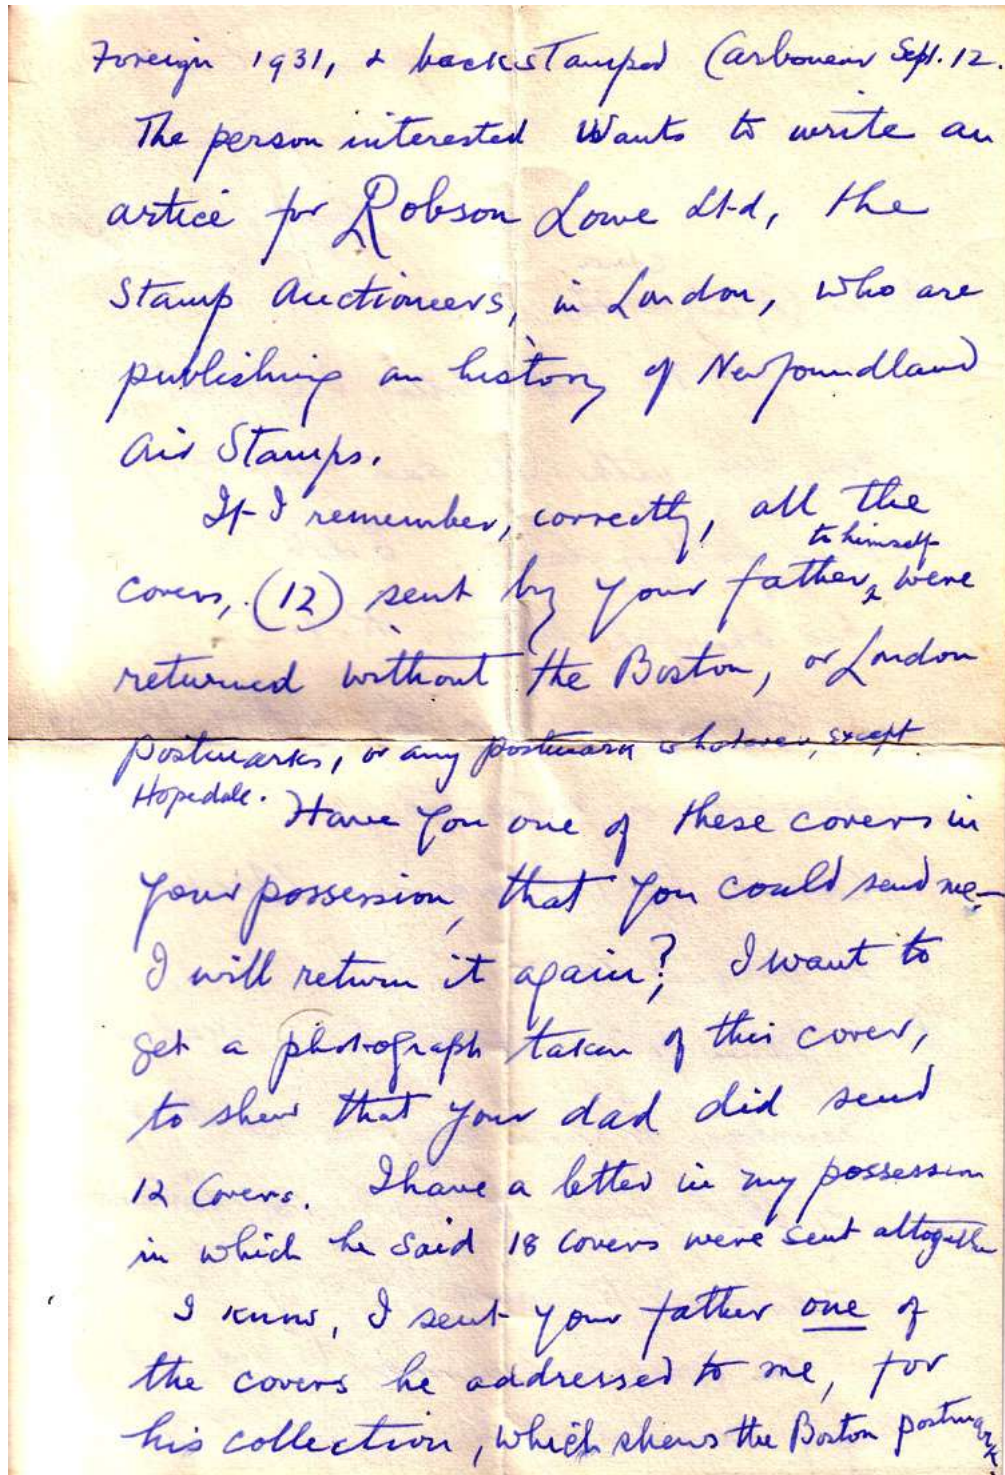 Foreign 1931, & backstamped Carbonear Sept. 12.
The person interested wants to write an
artice for Robson Lowe Ltd, the
Stamp Auctioneers, in London, who are
publishing an history of Newfoundland
Air Stamps.
If I remember, correctly, all the
to himself
covers, (12) sent by your father, were
returned without the Boston, or London
postmarks, or any postmark whatever, except
Hopedale.
Have you one of these covers in
your possession, that you could send me –
I will return it again? I want to
get a photograph taken of this cover,
to shew that your dad did send
12 Covers. I have a letter in my possession
in which he said 18 covers were sent altogether
I know, I sent your father one of
the covers he addressed to me, for
his collection, which shews the Boston postmark.